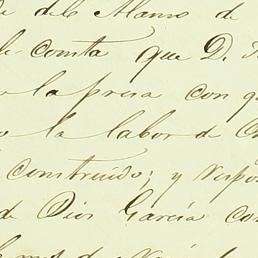 de dels Alamos de
le consta que D.
la presa con q
la labor d
construido; y respo
de Dios Garcia con